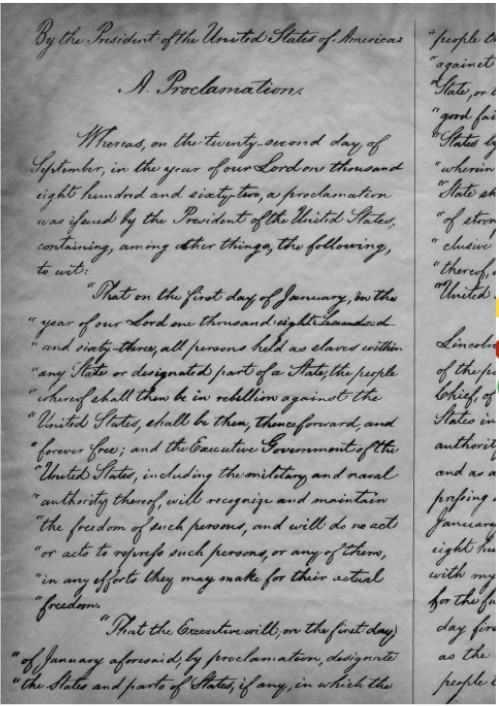 By the President of the United States of America:
A Proclamation.
Whereas, on the twenty-second day of
September, in the year of our Lord one thousand
eight hundred and sixty-two, a proclamation
was issued by the President of the United States,
containing, among other things, the following,
to wit:
"That on the first day of January, in the
"year of our Lord one thousand eight hundred
"and sixty-three, all persons held as slaves within
"any State or designated part of a State, the people
"whereof shall then be in rebellion against the
"United States, shall be then, thenceforward, and
"forever free; and the Executive Government of the
"United States, including the military and naval
"authority thereof, will recognize and maintain
"the freedom of such persons, and will do no act
"or acts to repress such persons, or any of them,
"in any efforts they may make for their actual
"freedom.
"That the Executive will, on the first day
"of January aforesaid, by proclamation, designate
"the States and parts of States, if any, in which the
"people
"against
"State, or
"good
"States by
"wherein
"State
"of
"clusive
"thereof,
"United
Lincoln
of the
Chief, of
States in
authority
and as a
January
eight
with my
for the
day
as the
people